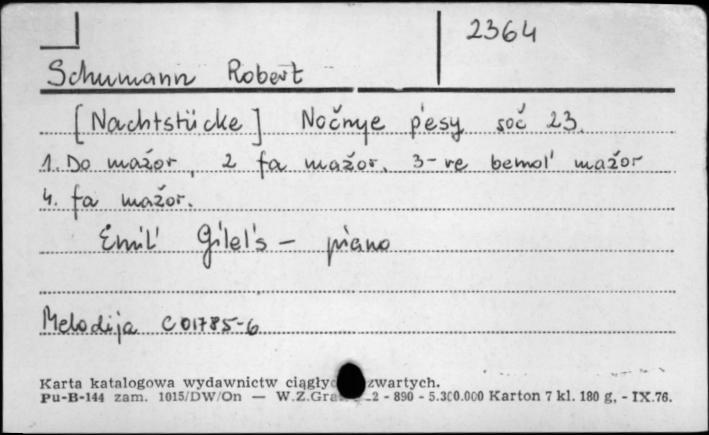 2364
Schumann Robert
[Nachtstücke] Nočnye p'esy soč 23.
1. Do mažor, 2 fa mažor. 3-re bemol' mažor
4. fa mažor.
Emil' Gilel's - piano
Melodija C 01785-6
Karta katalogowa wydawnictw zwartych.
Pu-B-144 zam. 1015/DW/On — W.Z.Graf. 2 - 890 - 5.300.000 Karton 7 kl. 180 g. - IX.76.